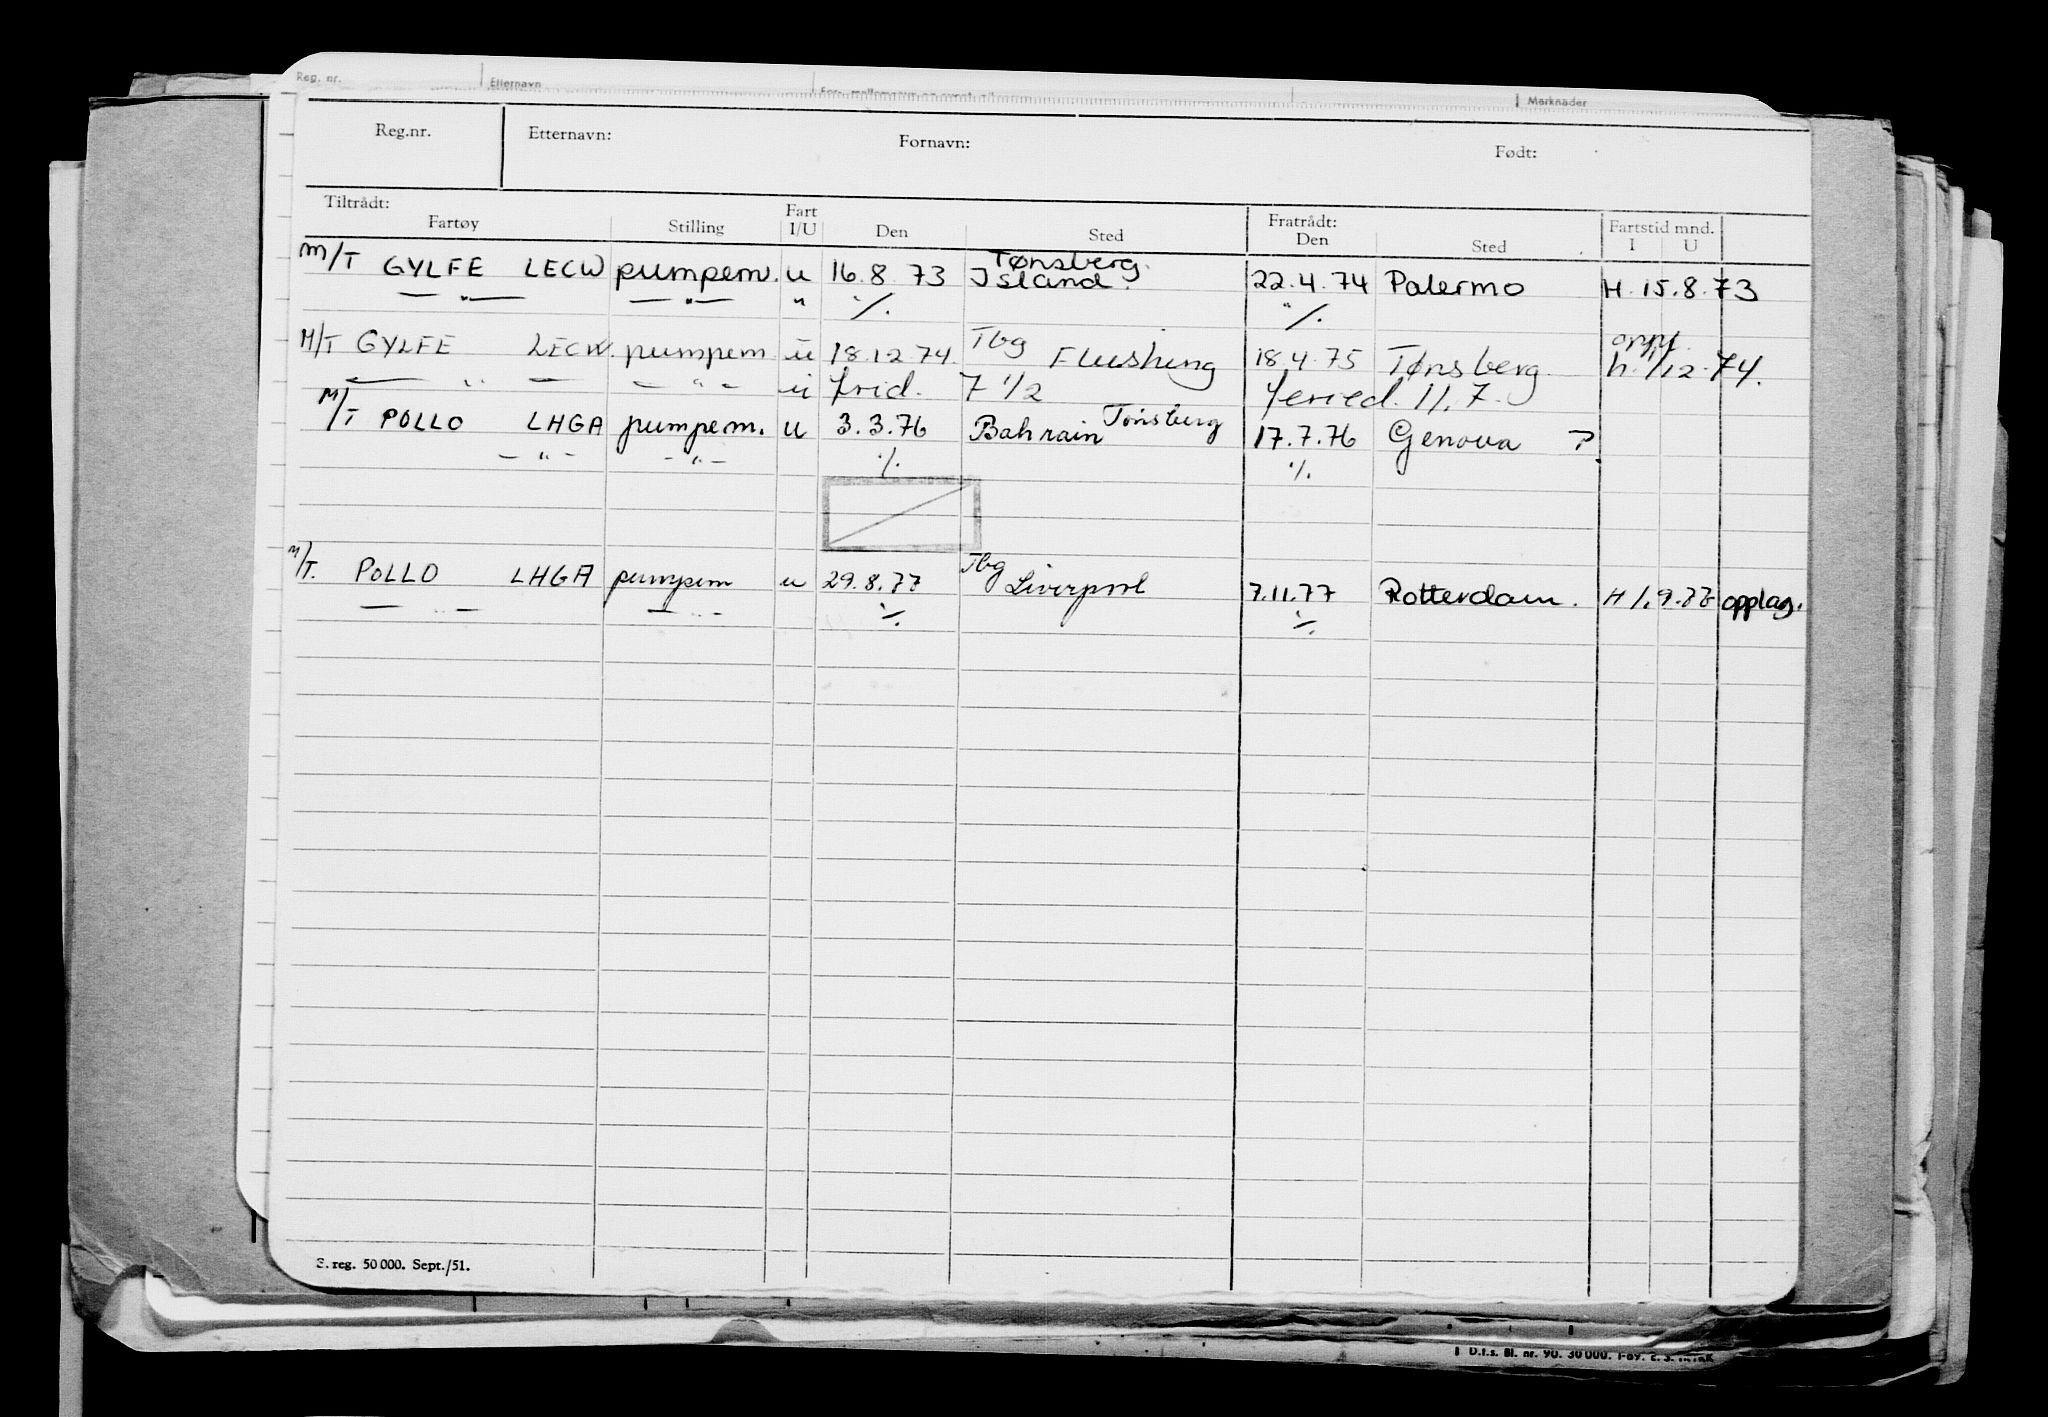 Reg. nr. Etternavn Merknader
Reg.nr. Etternavn: Fornavn: Født:
Tiltrådt: Fratrådt:
Fartøy Stilling Fart I/U Den Sted Den Sted Fartstid mnd. I U
Tønsberg.
M/T GYLFE LECW pumpem. u 16.8.73 Island. 22.4.74 Palermo H. 15.8.73
— " — — " — " ·/. " ·/.
M/T GYLFE LECW. pumpem u 18.12.74. Tbg Flushing 18.4.75 Tønsberg. h. 1/12.74.
— " — — " — u frid. 7 1/2 feried. 11.7.
M/T POLLO LHGA pumpem. u 3.3.76 Bahrain Tønsberg 17.7.76 Genova ?
— " — — " — ·/. ·/.
M/T. POLLO LHGA pumpem u 29.8.77 Tbg Liverpool 7.11.77 Rotterdam. H 1.9.77 opplag.
— " — — " — ·/. ·/.
S. reg. 50 000. Sept./51.
D.f.s. Bl. nr. 90. 30 000.